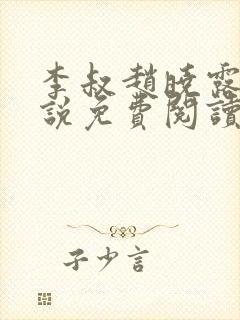 李叔趙曉露
說免費閱讀
子少言